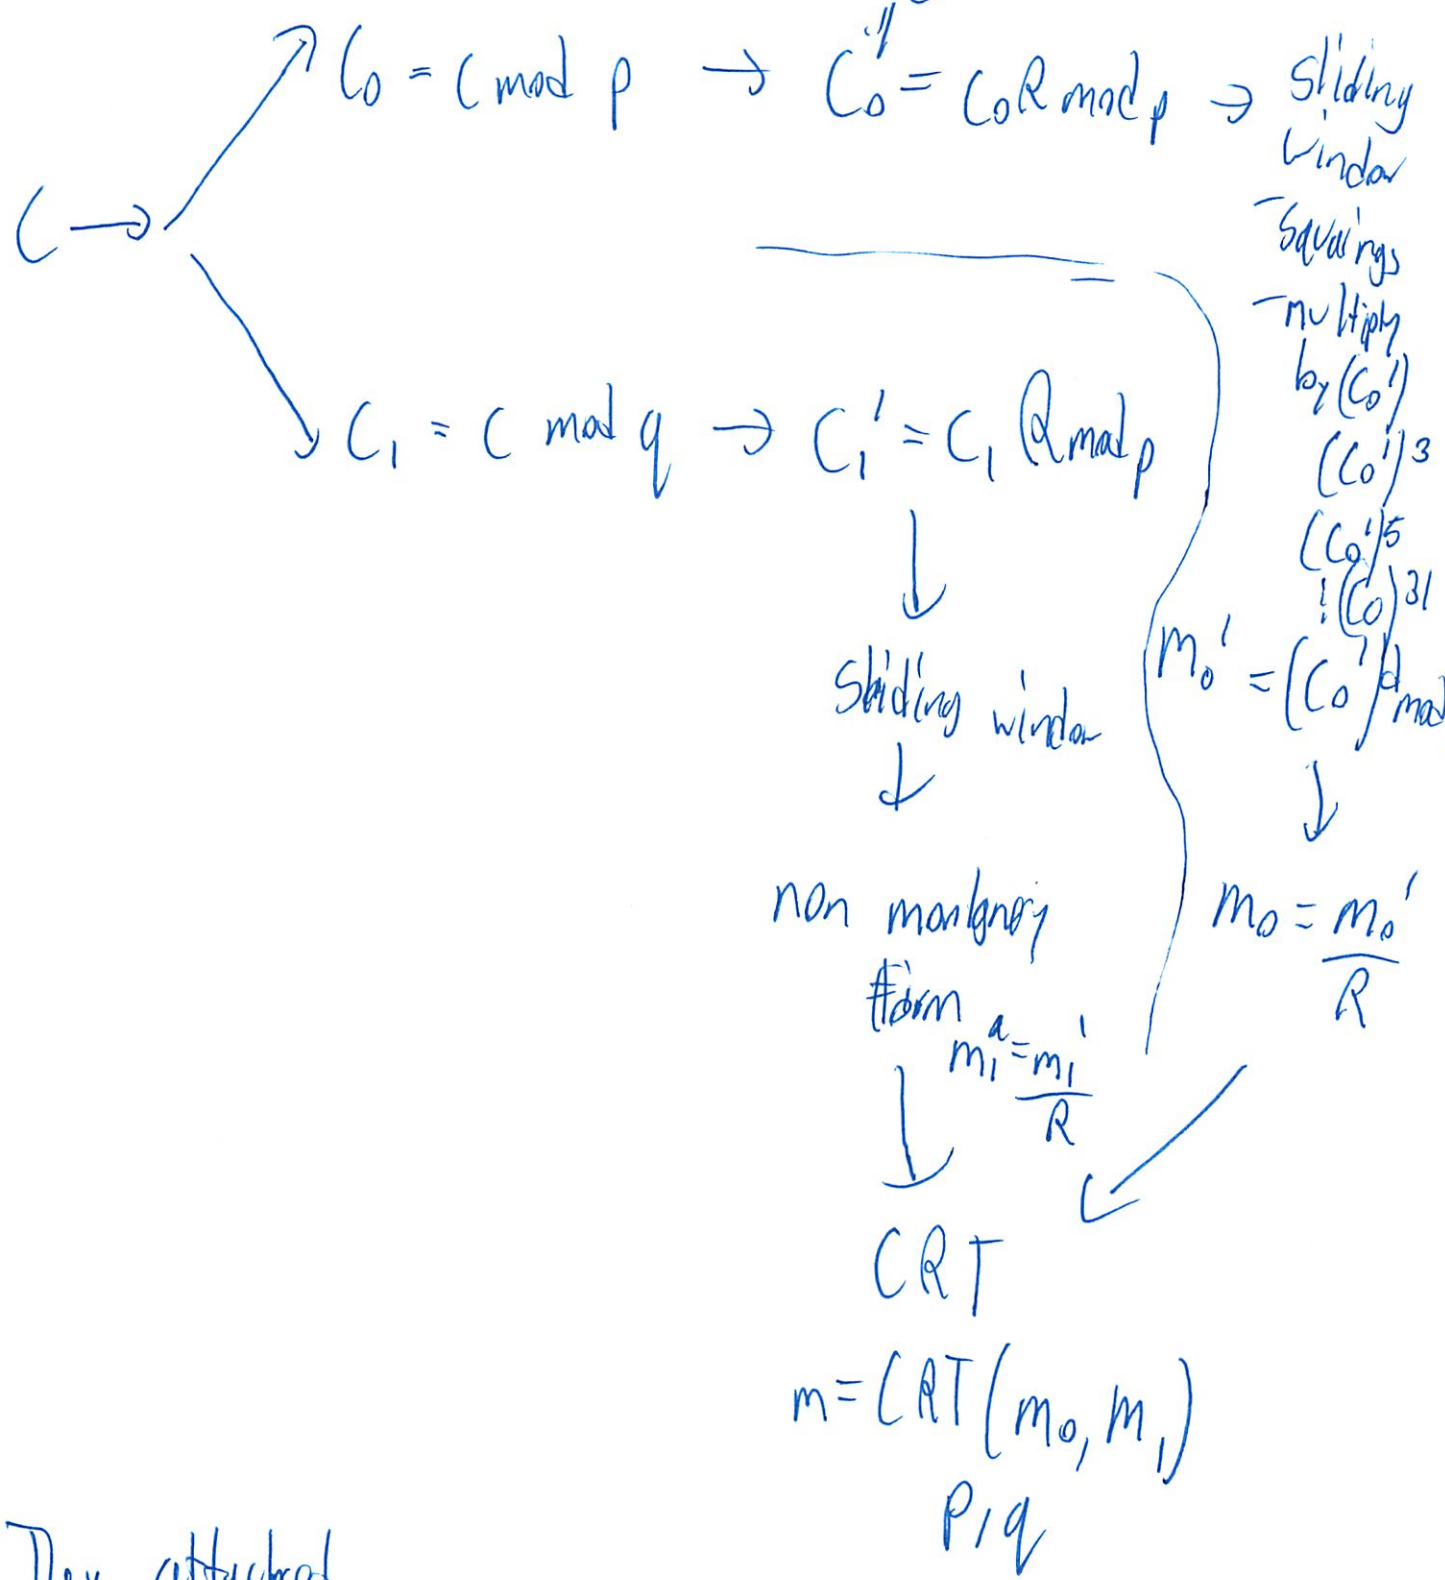 C₀ = C mod p → C₀' = C₀R mod p → sliding
window
- squarings
- multiply
by (C₀')
(C₀')³
(C₀')⁵
⋮ (C₀)³¹
m₀' = (C₀')ᵈ mod
↓
m₀ = m₀'/R
C →
C₁ = C mod q → C₁' = C₁ R mod p
↓
Sliding window
↓
non
form
m₁ = m₁'/R
↓
CRT
m = CRT(m₀, m₁)
p, q
They attacked